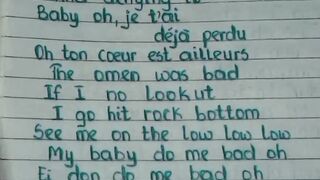 Baby oh, je t'ai
déjà perdu
Oh ton coeur est ailleurs
The omen was bad
If I no lookut
I go hit rock bottom
See me on the low low low
My baby do me bad oh
Ei don do me bad oh